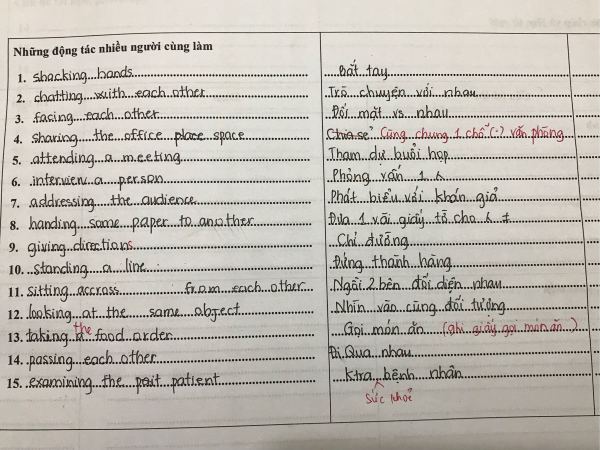 Những động tác nhiều người cùng làm
1. shacking hands Bắt tay
2. chatting with each other Trò chuyện với nhau
3. fasing each other Đối mặt vs nhau
4. sharing the office place space Chia sẻ Cùng chung 1 chỗ (-) văn phòng
5. attending a meeting Tham dự buổi họp
6. interview a person Phỏng vấn 1
7. addressing the audience Phát biểu với khán giả
8. handing some paper to another Đưa 1 vài giấy tờ cho ≠
9. giving directions Chỉ đường
10. standing a line Đứng thành hàng
11. sitting accross from each other Ngồi 2 bên đối diện nhau
12. looking at the same object Nhìn vào cùng đối tượng
13. taking the food order Gọi món ăn (ghi giấy gọi món ăn)
14. passing each other Đi Qua nhau
15. examining the patient Ktra bệnh nhân
sức khoẻ